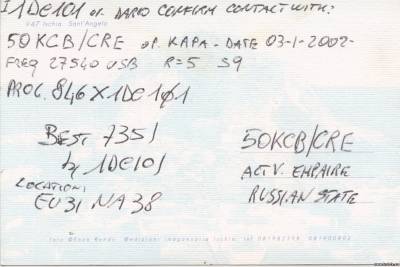 1DE101 op. DARIO CONFIRM CONTACT WITH:
847 Ischia. Sant'Angelo
50KCB/CRE op. KAPA - DATE 03-1-2002-
FREQ 27540 USB R=5 S9
PROG. 846X1DE101
BEST 735/
by 1DE101
LOCATION:
EU31 NA38
50KCB/CRE
ACTV. EMPAIRE
RUSSIAN STATE
foto ©Enzo Rando Medizioni Imagaenaria Ischia